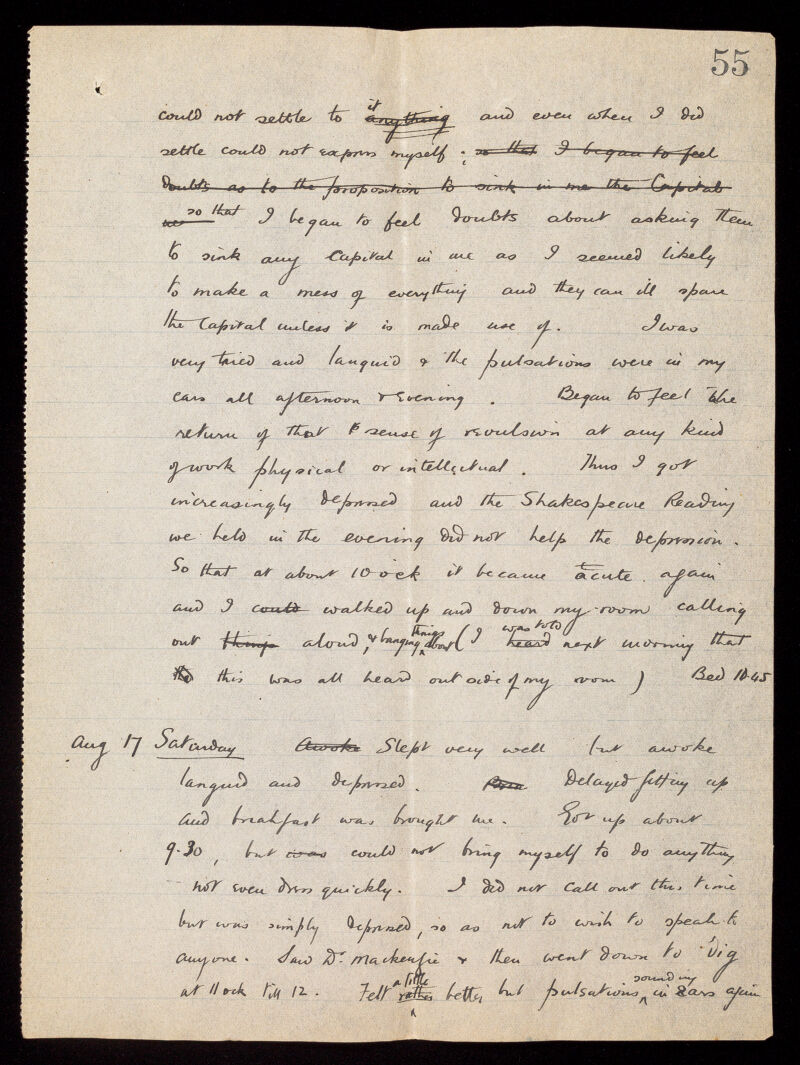 55
could not settle to it anything and even when I did
settle could not express myself; so that I began to feel
doubts as to the proposition to sink in me the Capital
so that I began to feel doubts about asking them
to sink any Capital in me as I seemed likely
to make a mess of everything and they can ill spare
the Capital unless it is made use of. I was
very tried and languid & the pulsations were in my
ears all afternoon & Evening. Began to feel the
return of that sense of revulsion at any kind
of work physical or intellectual. Thus I got
increasingly depressed and the Shakespeare Reading
we held in the evening did not help the depression.
So that at about 10 ock it became acute again
and I could walked up and down my room calling
out things aloud, & banging things about (I was told heard next morning that
this was all heard outside of my room) Bed 10.45
Aug 17 Saturday Awoke Slept very well but awoke
languid and depressed. Delayed getting up
and breakfast was brought me. Got up about
9.30, but was could not bring myself to do anything
not even dress quickly. I did not call out this time
but was simply depressed, so as not to wish to speak to
anyone. Saw Dr. Mackenzie & then went down to Dig
at 11 ock till 12. Felt a little rather better but pulsations sounding in ears again